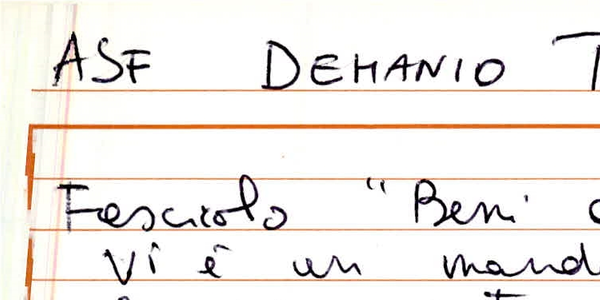 ASF DEMANIO T
Fascicolo "Beni
Vi è un mand